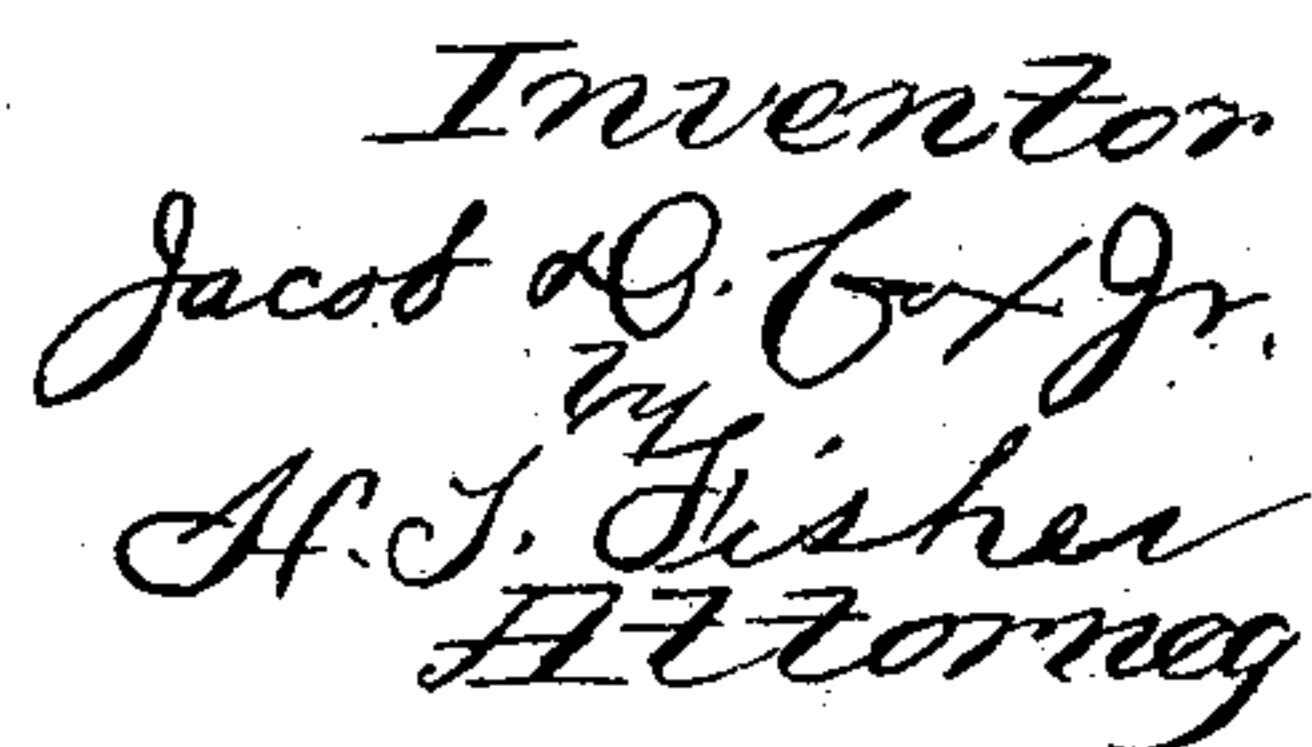 Inventor
Jacob D. Cox Jr.
by
H. T. Fisher
Attorney